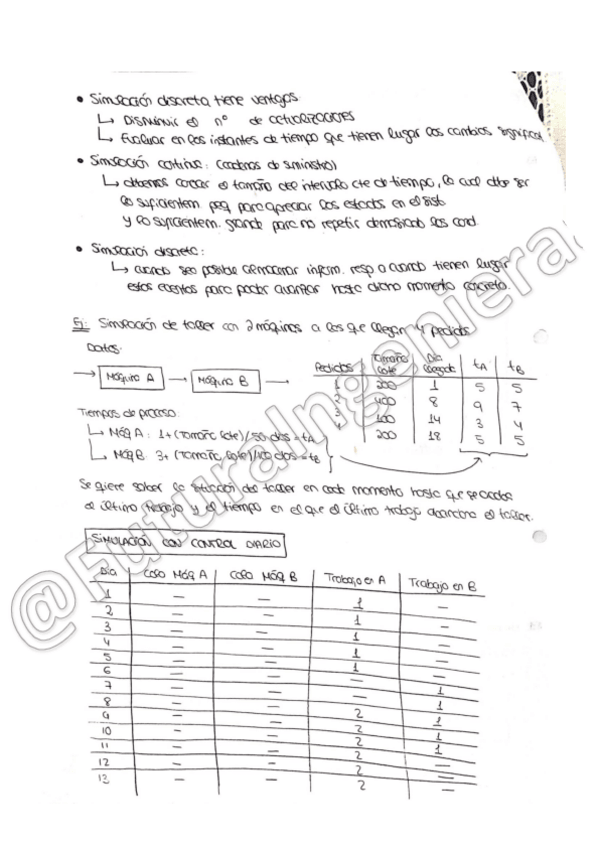 • Simulación discreta tiene ventajas:
↳ Disminuir el nº de actualizaciones
↳ Evaluar en los instantes de tiempo que tienen lugar los cambios significat
• Simulación continua: (cadenas de suministro)
↳ debemos coger el tamaño del intervalo cte de tiempo, lo cual debe ser
lo suficientem. peq. para apreciar los estados en el sist
y lo suficientem. grande para no repetir demasiado los cond.
• Simulación discreta:
↳ cuando sea posible almacenar inform. resp a cuando tienen lugar
estos eventos para poder avanzar hasta dicho momento concreto.
Ej: Simulación de taller con 2 máquinas a los que llegan 4 pedidos
Datos:
→ Máquina A → Máquina B →
Pedidos Tamaño lote Día llegada tA tB
1 200 1 5 5
2 400 8 9 7
3 100 14 3 4
4 200 18 5 5
Tiempos de proceso:
↳ Máq A: 1+(Tamaño lote)/50 días = tA
↳ Máq B: 3+(Tamaño lote)/100 días = tB
Se quiere saber la situación del taller en cada momento hasta que se acabe
el último trabajo y el tiempo en el que el último trabajo abandona el taller.
SIMULACIÓN CON CONTROL DIARIO
Día Cola Máq A Cola Máq B Trabajo en A Trabajo en B
1 — — 1 —
2 — — 1 —
3 — — 1 —
4 — — 1 —
5 — — 1 —
6 — — — 1
7 — — — 1
8 — — 2 1
9 — — 2 1
10 — — 2 1
11 — — 2 —
12 — — 2 —
13 — — 2 —
@FuturaIngeniera